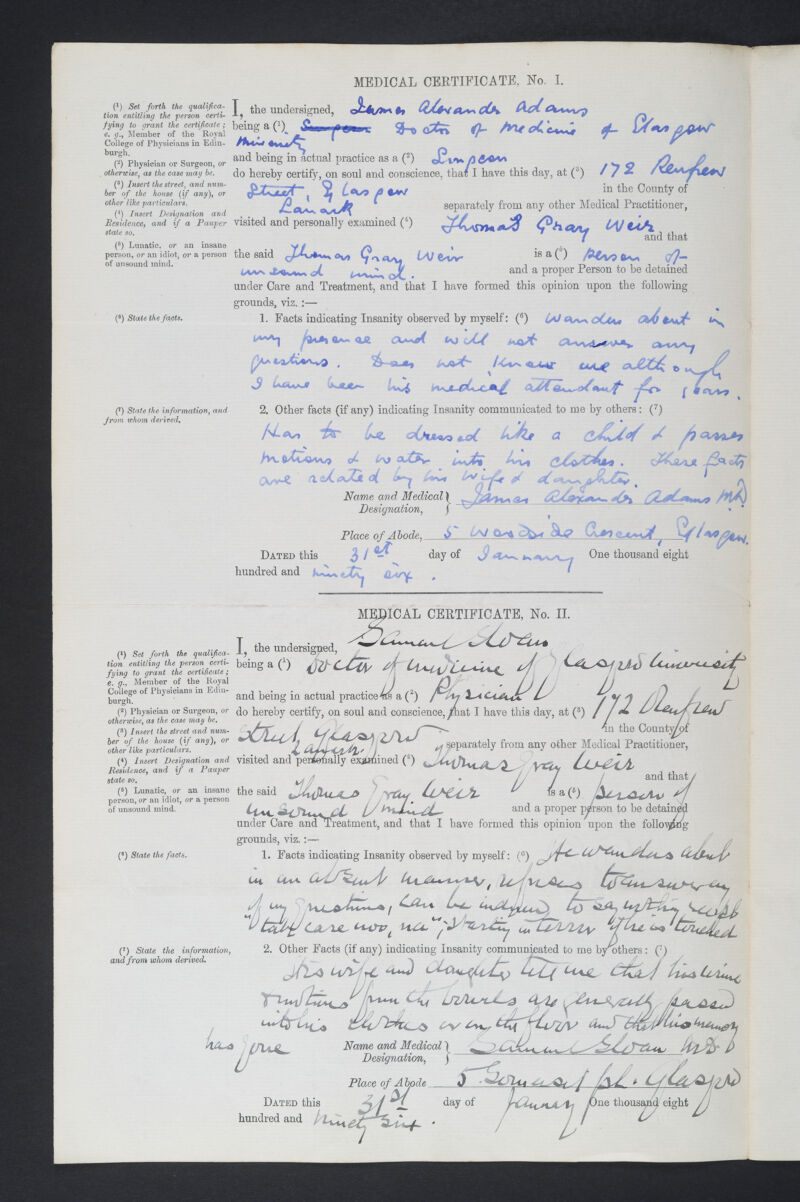 MEDICAL CERTIFICATE, No. I.
(1) Set forth the qualifica-
tion entitling the person certi-
fying to grant the certificate;
e. g., Member of the Royal
College of Physicians in Edin-
burgh.
(2) Physician or Surgeon, or
otherwise, as the case may be.
(3) Insert the street, and num-
ber of the house (if any), or
other like particulars.
(4) Insert Designation and
Residence, and if a Pauper
state so.
(5) Lunatic, or an insane
person, or an idiot, or a person
of unsound mind.
I, the undersigned, James Alexander Adams
being a (1) Surgeon Doctor of Medicine of Glasgow
University
and being in actual practice as a (2) Surgeon
do hereby certify, on soul and conscience, that I have this day, at (3) 172 Renfrew
Street, Glasgow in the County of
Lanark separately from any other Medical Practitioner,
visited and personally examined (4) Thomas Gray Weir
and that
the said Thomas Gray Weir is a (5) person of
unsound mind. and a proper Person to be detained
under Care and Treatment, and that I have formed this opinion upon the following
grounds, viz. :—
(6) State the facts.
1. Facts indicating Insanity observed by myself: (6) Wanders about in
my presence and will not answer any
questions. Does not know me although
I have been his medical attendant for years.
(7) State the information, and
from whom derived.
2. Other facts (if any) indicating Insanity communicated to me by others: (7)
Has to be dressed like a child & passes
motions & water into his clothes. These facts
are related by his wife & daughter.
Name and Medical Designation, James Alexander Adams M.D.
Place of Abode, 5 Woodside Crescent, Glasgow.
DATED this 31st day of January One thousand eight
hundred and ninety six.
MEDICAL CERTIFICATE, No. II.
(1) Set forth the qualifica-
tion entitling the person certi-
fying to grant the certificate;
e. g., Member of the Royal
College of Physicians in Edin-
burgh.
(2) Physician or Surgeon, or
otherwise, as the case may be.
(3) Insert the street and num-
ber of the house (if any), or
other like particulars.
(4) Insert Designation and
Residence, and if a Pauper
state so.
(5) Lunatic, or an insane
person, or an idiot, or a person
of unsound mind.
I, the undersigned, Samuel Sloan
being a (1) Doctor of medicine of Glasgow University
and being in actual practice as a (2) Physician
do hereby certify, on soul and conscience, that I have this day, at (3) 172 Renfrew
Street, Glasgow in the County of
Lanark separately from any other Medical Practitioner,
visited and personally examined (4) Thomas Gray Weir
and that
the said Thomas Gray Weir is a (5) person of
unsound mind and a proper person to be detained
under Care and Treatment, and that I have formed this opinion upon the following
grounds, viz. :—
(6) State the facts.
1. Facts indicating Insanity observed by myself: (6) He wanders about
in an absent manner, refuses to answer any
of my questions, can be induced to say nothing except
"take care now, na"; starting in terror if he is touched
(7) State the information,
and from whom derived.
2. Other Facts (if any) indicating Insanity communicated to me by others: (7)
His wife and daughter tell me that his urine
& motions from the bowels are generally passed
into his clothes or on the floor and that his memory
has gone
Name and Medical Designation, Samuel Sloan M.D.
Place of Abode 5 Somerset pl. Glasgow
DATED this 31st day of January One thousand eight
hundred and ninety six.